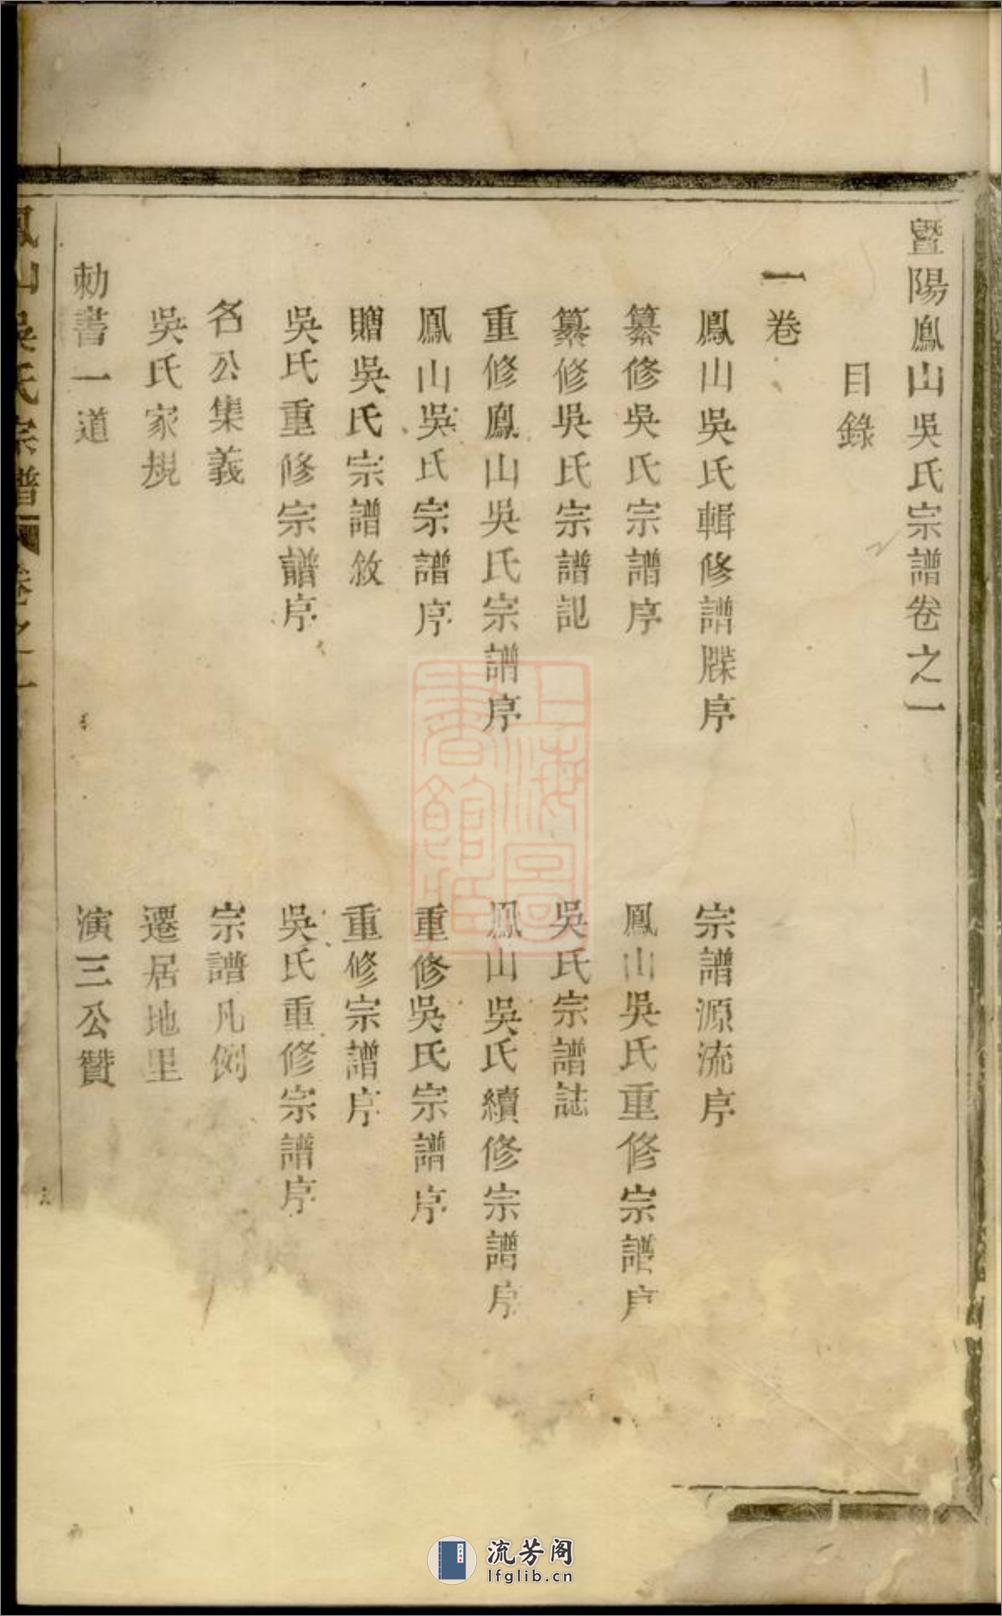 暨陽鳳山吳氏宗譜卷之一
目錄
一卷
鳳山吳氏輯修譜牒序
宗譜源流序
纂修吳氏宗譜序
鳳山吳氏重修宗譜序
纂修吳氏宗譜記
吳氏宗譜誌
重修鳳山吳氏宗譜序
鳳山吳氏續修宗譜序
鳳山吳氏宗譜序
重修吳氏宗譜序
贈吳氏宗譜敘
重修宗譜序
吳氏重修宗譜序
吳氏重修宗譜序
名公集義
宗譜凡例
吳氏家規
遷居地里
勅書一道
演三公贊
鳳山吳氏宗譜
卷之一
上海圖書館藏
流芳阁
lfglib.cn